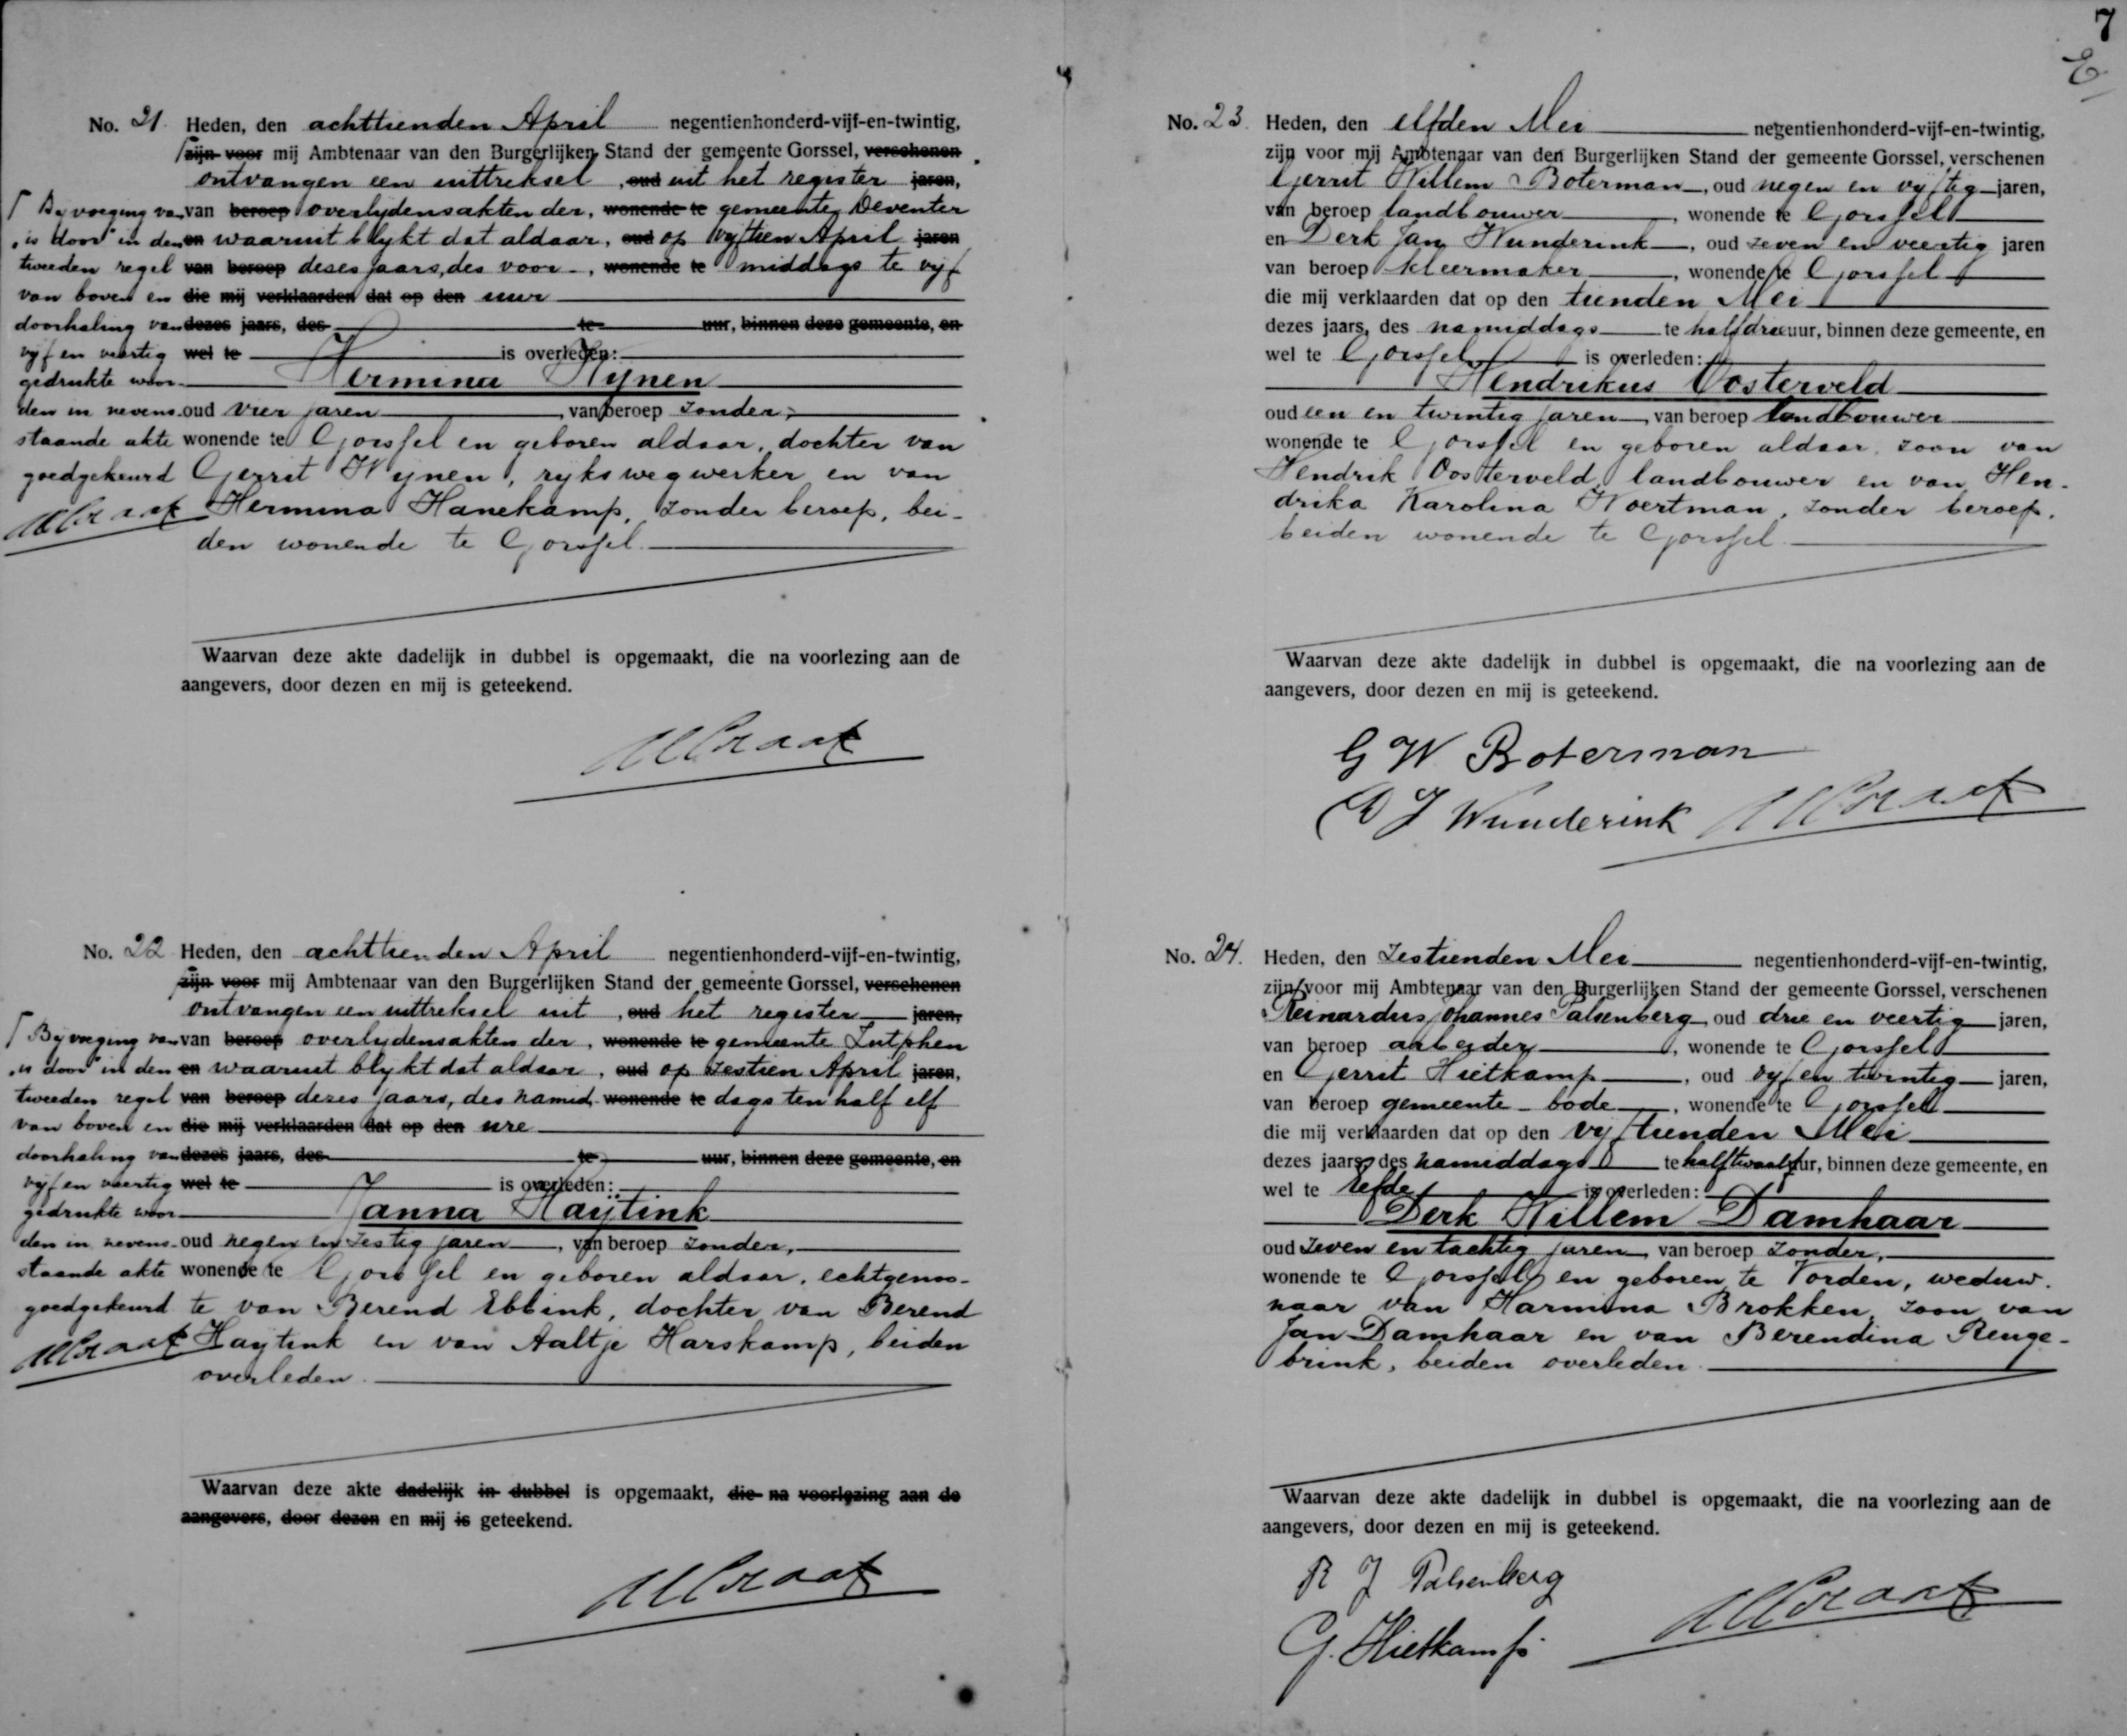 7
E
No. 21. Heden, den achttienden April negentienhonderd-vijf-en-twintig,
zijn voor mij Ambtenaar van den Burgerlijken Stand der gemeente Gorssel, verschenen
ontvangen een uittreksel , oud uit het register jaren,
van beroep overlijdensakten der , wonende te gemeente Deventer
en waaruit blijkt dat aldaar , oud op vijftien April jaren
van beroep dezes jaars, des voor- , wonende te middags te vijf
die mij verklaarden dat op den uur
dezes jaars, des te uur, binnen deze gemeente, en
wel te is overleden:
Hermina Wijnen
oud vier jaren , van beroep zonder,
wonende te Gorssel en geboren aldaar, dochter van
Gerrit Wijnen, rijkswegwerker en van
Hermina Hanekamp, zonder beroep, bei-
den wonende te Gorssel.
Bijvoeging van
"is door" in den
tweeden regel
van boven en
doorhaling van
vijf en veertig
gedrukte woor-
den in nevens-
staande akte
goedgekeurd
Waarvan deze akte dadelijk in dubbel is opgemaakt, die na voorlezing aan de
aangevers, door dezen en mij is geteekend.
No. 22 Heden, den achttienden April negentienhonderd-vijf-en-twintig,
zijn voor mij Ambtenaar van den Burgerlijken Stand der gemeente Gorssel, verschenen
ontvangen een uittreksel uit , oud het register jaren,
van beroep overlijdensakten der , wonende te gemeente Zutphen
en waaruit blijkt dat aldaar , oud op zestien April jaren,
van beroep dezes jaars, des namid- wonende te dags ten half elf
die mij verklaarden dat op den ure
dezes jaars, des te uur, binnen deze gemeente, en
wel te is overleden:
Janna Haÿtink
oud negen en zestig jaren , van beroep zonder,
wonende te Gorssel en geboren aldaar, echtgenoo-
te van Berend Ebbink, dochter van Berend
Haytink en van Aaltje Harskamp, beiden
overleden.
Bijvoeging van
"is door" in den
tweeden regel
van boven en
doorhaling van
vijf en veertig
gedrukte woor-
den in nevens-
staande akte
goedgekeurd
Waarvan deze akte dadelijk in dubbel is opgemaakt, die na voorlezing aan de
aangevers, door dezen en mij is geteekend.
No. 23. Heden, den elfden Mei negentienhonderd-vijf-en-twintig,
zijn voor mij Ambtenaar van den Burgerlijken Stand der gemeente Gorssel, verschenen
Gerrit Willem Boterman , oud negen en vijftig jaren,
van beroep landbouwer , wonende te Gorssel
en Derk Jan Wunderink , oud zeven en veertig jaren
van beroep kleermaker , wonende te Gorssel
die mij verklaarden dat op den tienden Mei
dezes jaars, des namiddags te half drie uur, binnen deze gemeente, en
wel te Gorssel is overleden:
Hendrikus Oosterveld
oud een en twintig jaren , van beroep landbouwer
wonende te Gorssel en geboren aldaar, zoon van
Hendrik Oosterveld, landbouwer en van Hen-
drika Karolina Woertman, zonder beroep,
beiden wonende te Gorssel.
Waarvan deze akte dadelijk in dubbel is opgemaakt, die na voorlezing aan de
aangevers, door dezen en mij is geteekend.
G W Boterman
D J Wunderink
No. 24. Heden, den zestienden Mei negentienhonderd-vijf-en-twintig,
zijn voor mij Ambtenaar van den Burgerlijken Stand der gemeente Gorssel, verschenen
Reinardus Johannes Palsenberg , oud drie en veertig jaren,
van beroep arbeider , wonende te Gorssel
en Gerrit Hietkamp , oud vijf en twintig jaren,
van beroep gemeente-bode , wonende te Gorssel
die mij verklaarden dat op den vijftienden Mei
dezes jaars, des namiddags te half twaalf uur, binnen deze gemeente, en
wel te Eefde is overleden:
Derk Willem Damhaar
oud zeven en tachtig jaren , van beroep zonder,
wonende te Gorssel en geboren te Vorden, weduw-
naar van Harmina Brokken, zoon van
Jan Damhaar en van Berendina Renge-
brink, beiden overleden.
Waarvan deze akte dadelijk in dubbel is opgemaakt, die na voorlezing aan de
aangevers, door dezen en mij is geteekend.
R J Palsenberg
G. Hietkamp